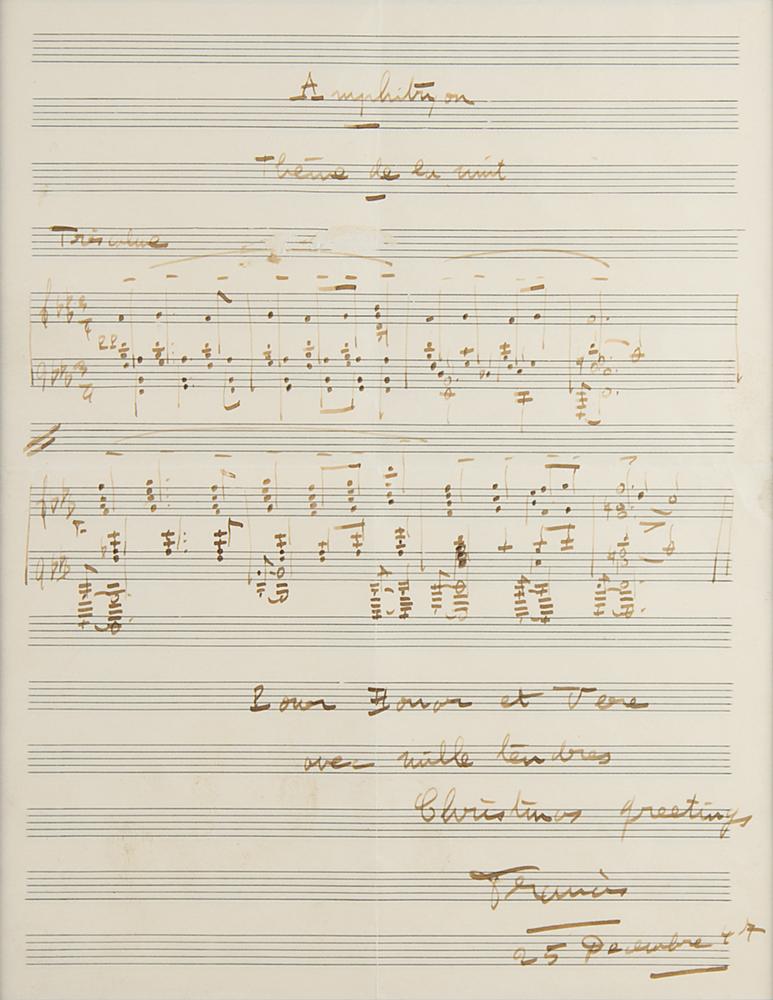 Amphitryon
Thème de la nuit
Très calme
Pour Honor et Vere
avec mille tendres
Christmas greetings
Francis
25 Decembre 47